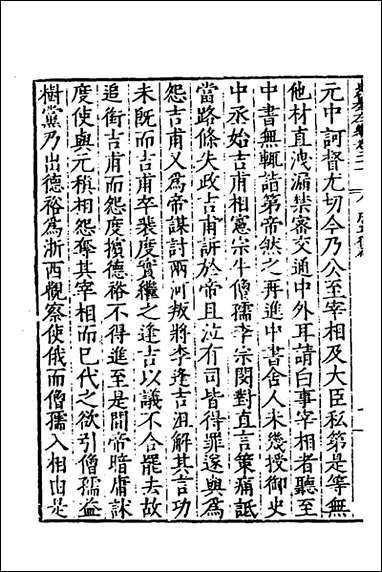 元中訶督尤切今乃公至宰相及大臣私第是等無
他材直洩漏禁密交通中外耳請白事宰相者聽至
中書無輒詣第帝然之再進中書舍人未幾授御史
中丞始吉甫相憲宗牛僧孺李宗閔對直言策痛詆
當路條失政吉甫訴於帝且泣有司皆得罪遂與爲
怨吉甫又爲帝謀討兩河叛將李逢吉沮解其言功
未既而吉甫卒裴度實繼之逢吉以議不合罷去故
追銜吉甫而怨度擯德裕不得進至是間帝暗庸訹
度使與元稹相怨奪其宰相而已代之欲引僧孺益
樹黨乃出德裕爲浙西觀察使俄而僧孺入相由是